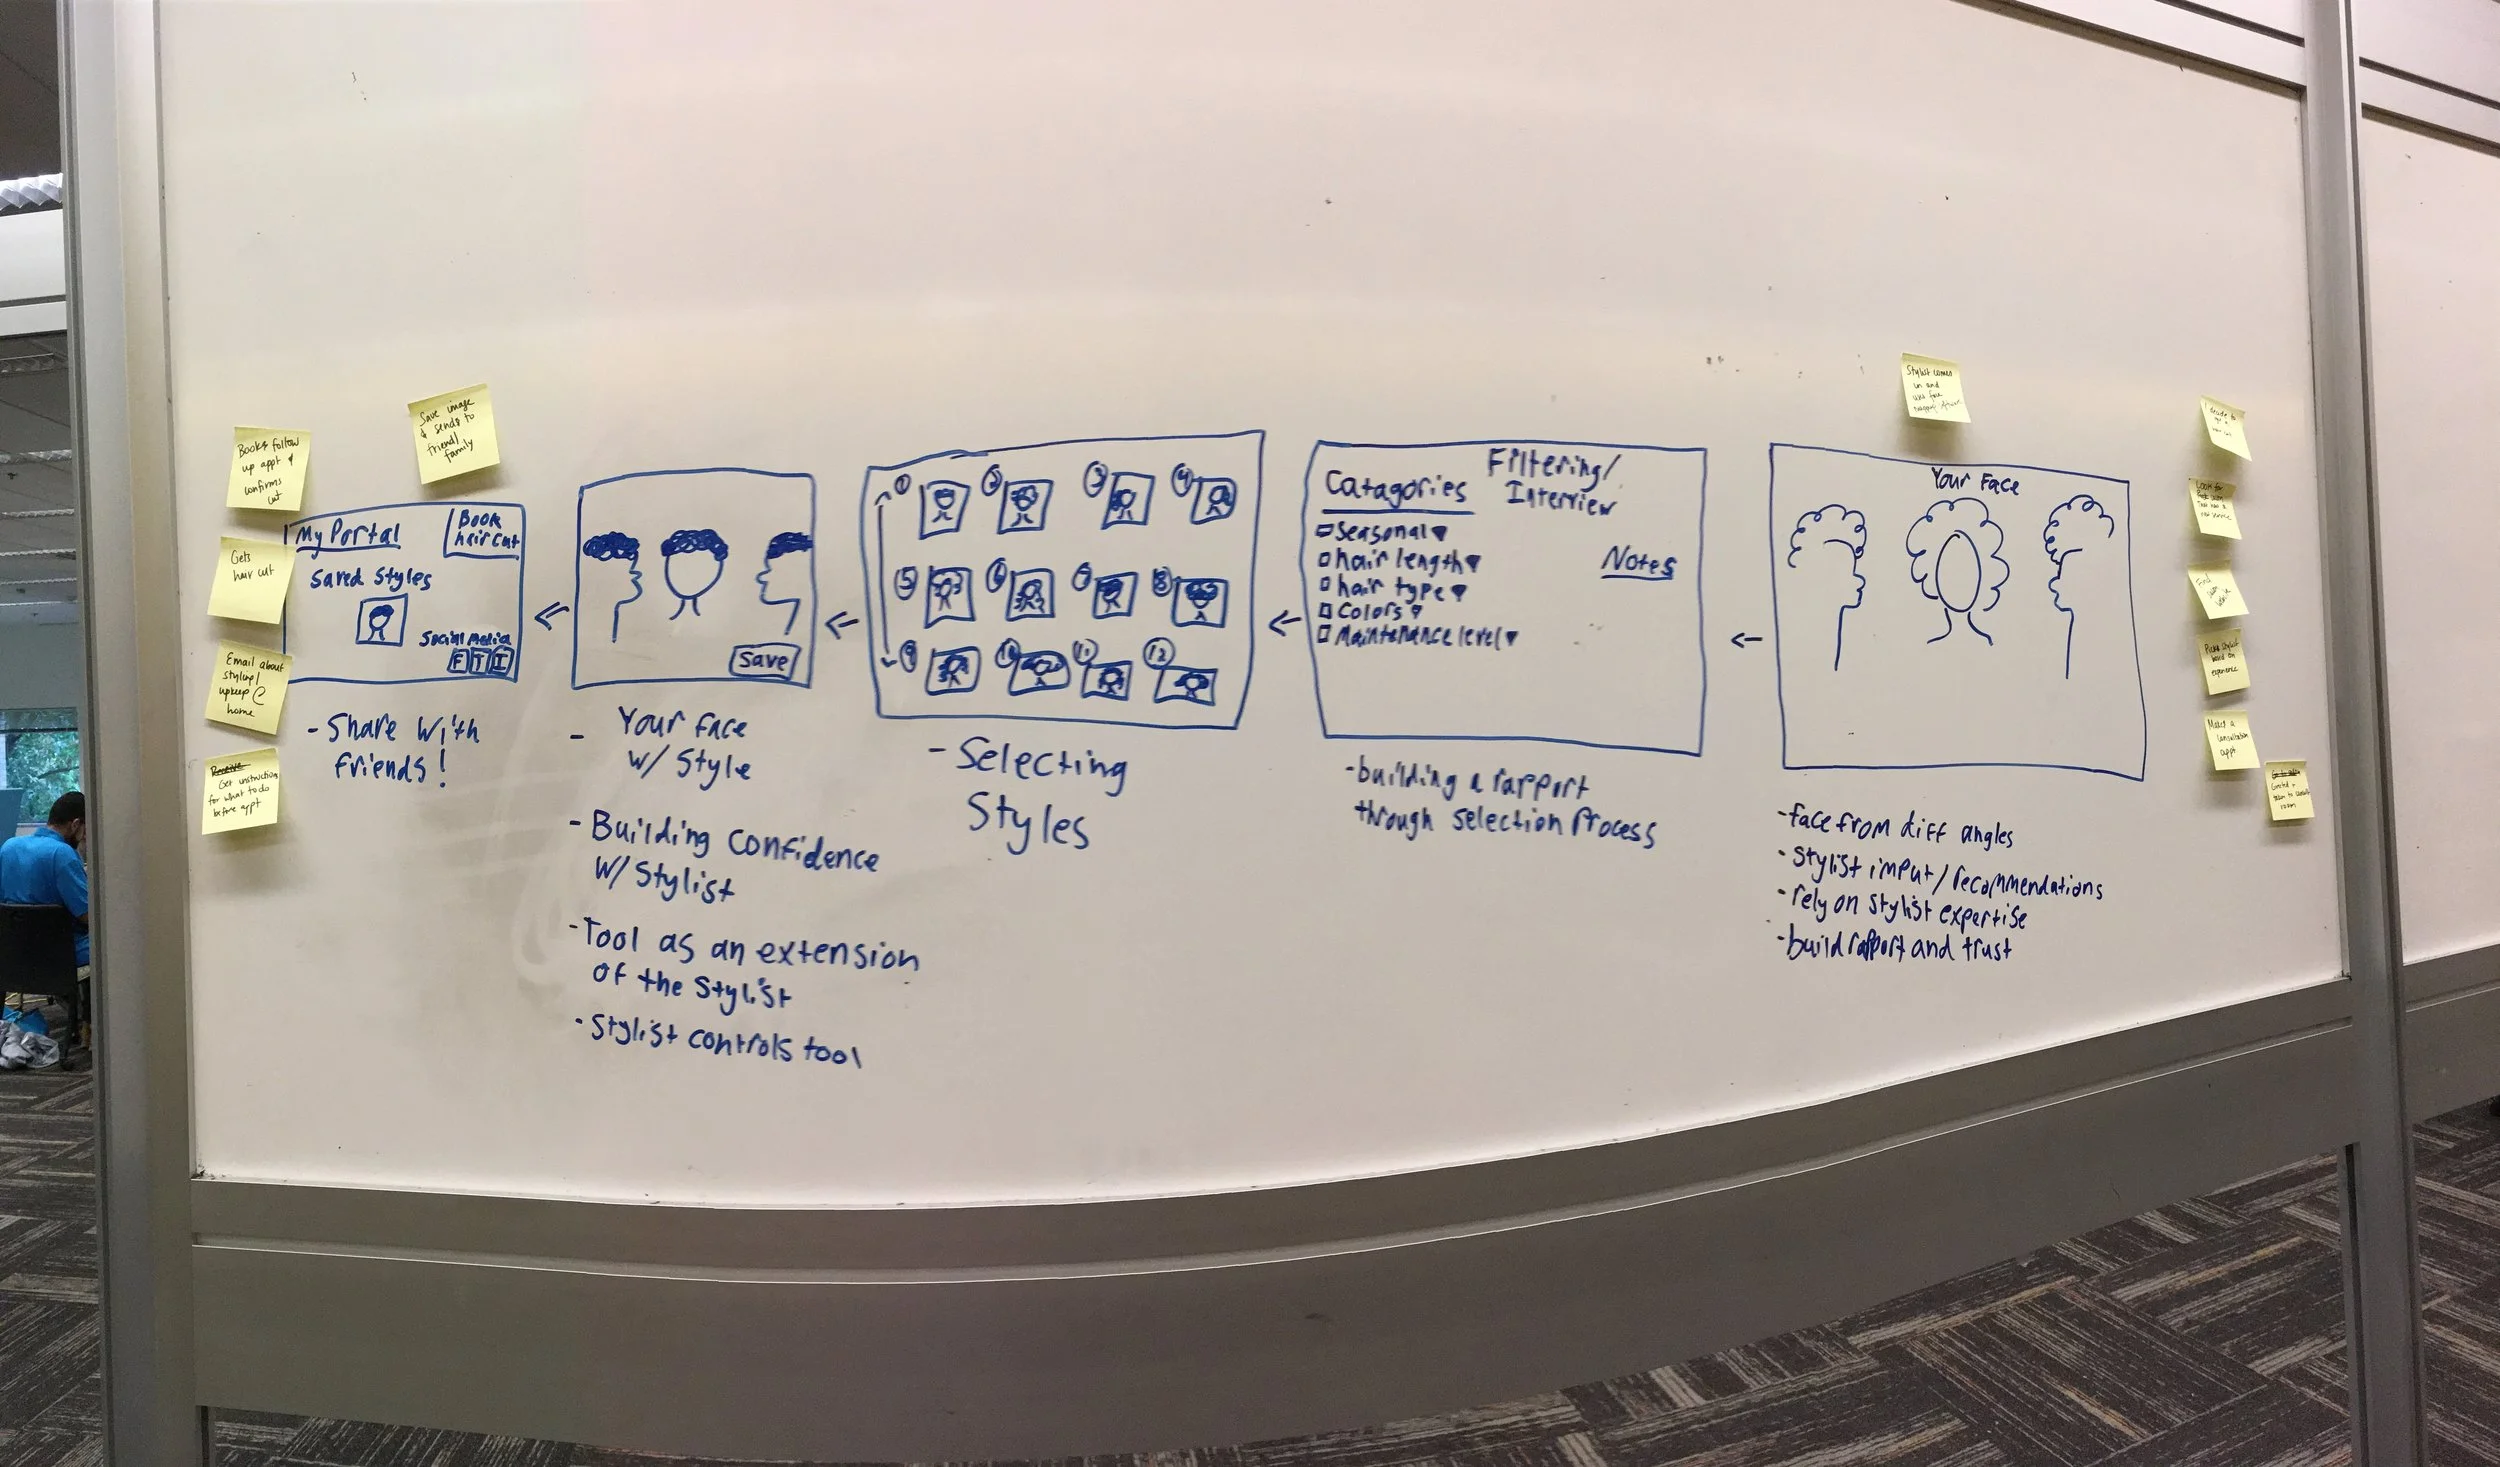 Books follow
up appt &
confirms
cut
Save image
& sends to
friend/
family
Gets
hair cut
Email about
styling/
upkeep @
home
Get instructions
for what to do
before appt
My Portal
Book
haircut
Saved Styles
Social Media
F T I
- Share with
friends!
Save
- Your face
w/ Style
- Building confidence
w/ Stylist
- Tool as an extension
of the Stylist
- Stylist controls tool
1 2 3 4
5 6 7 8
9 10 11 12
- Selecting
Styles
Catagories
Filtering/
Interview
Seasonal
hair length
hair type
Colors
Maintenance level
Notes
- building a rapport
through selection Process
Stylist comes
in and
uses face
mapping software
Your Face
- face from diff angles
- Stylist input/recommendations
- rely on stylist expertise
- build rapport and trust
I decide to
get a
Look for
that has a
Find
Picks stylist
based on
experience
Makes a
consultation
appt
Greeted &
taken to
room